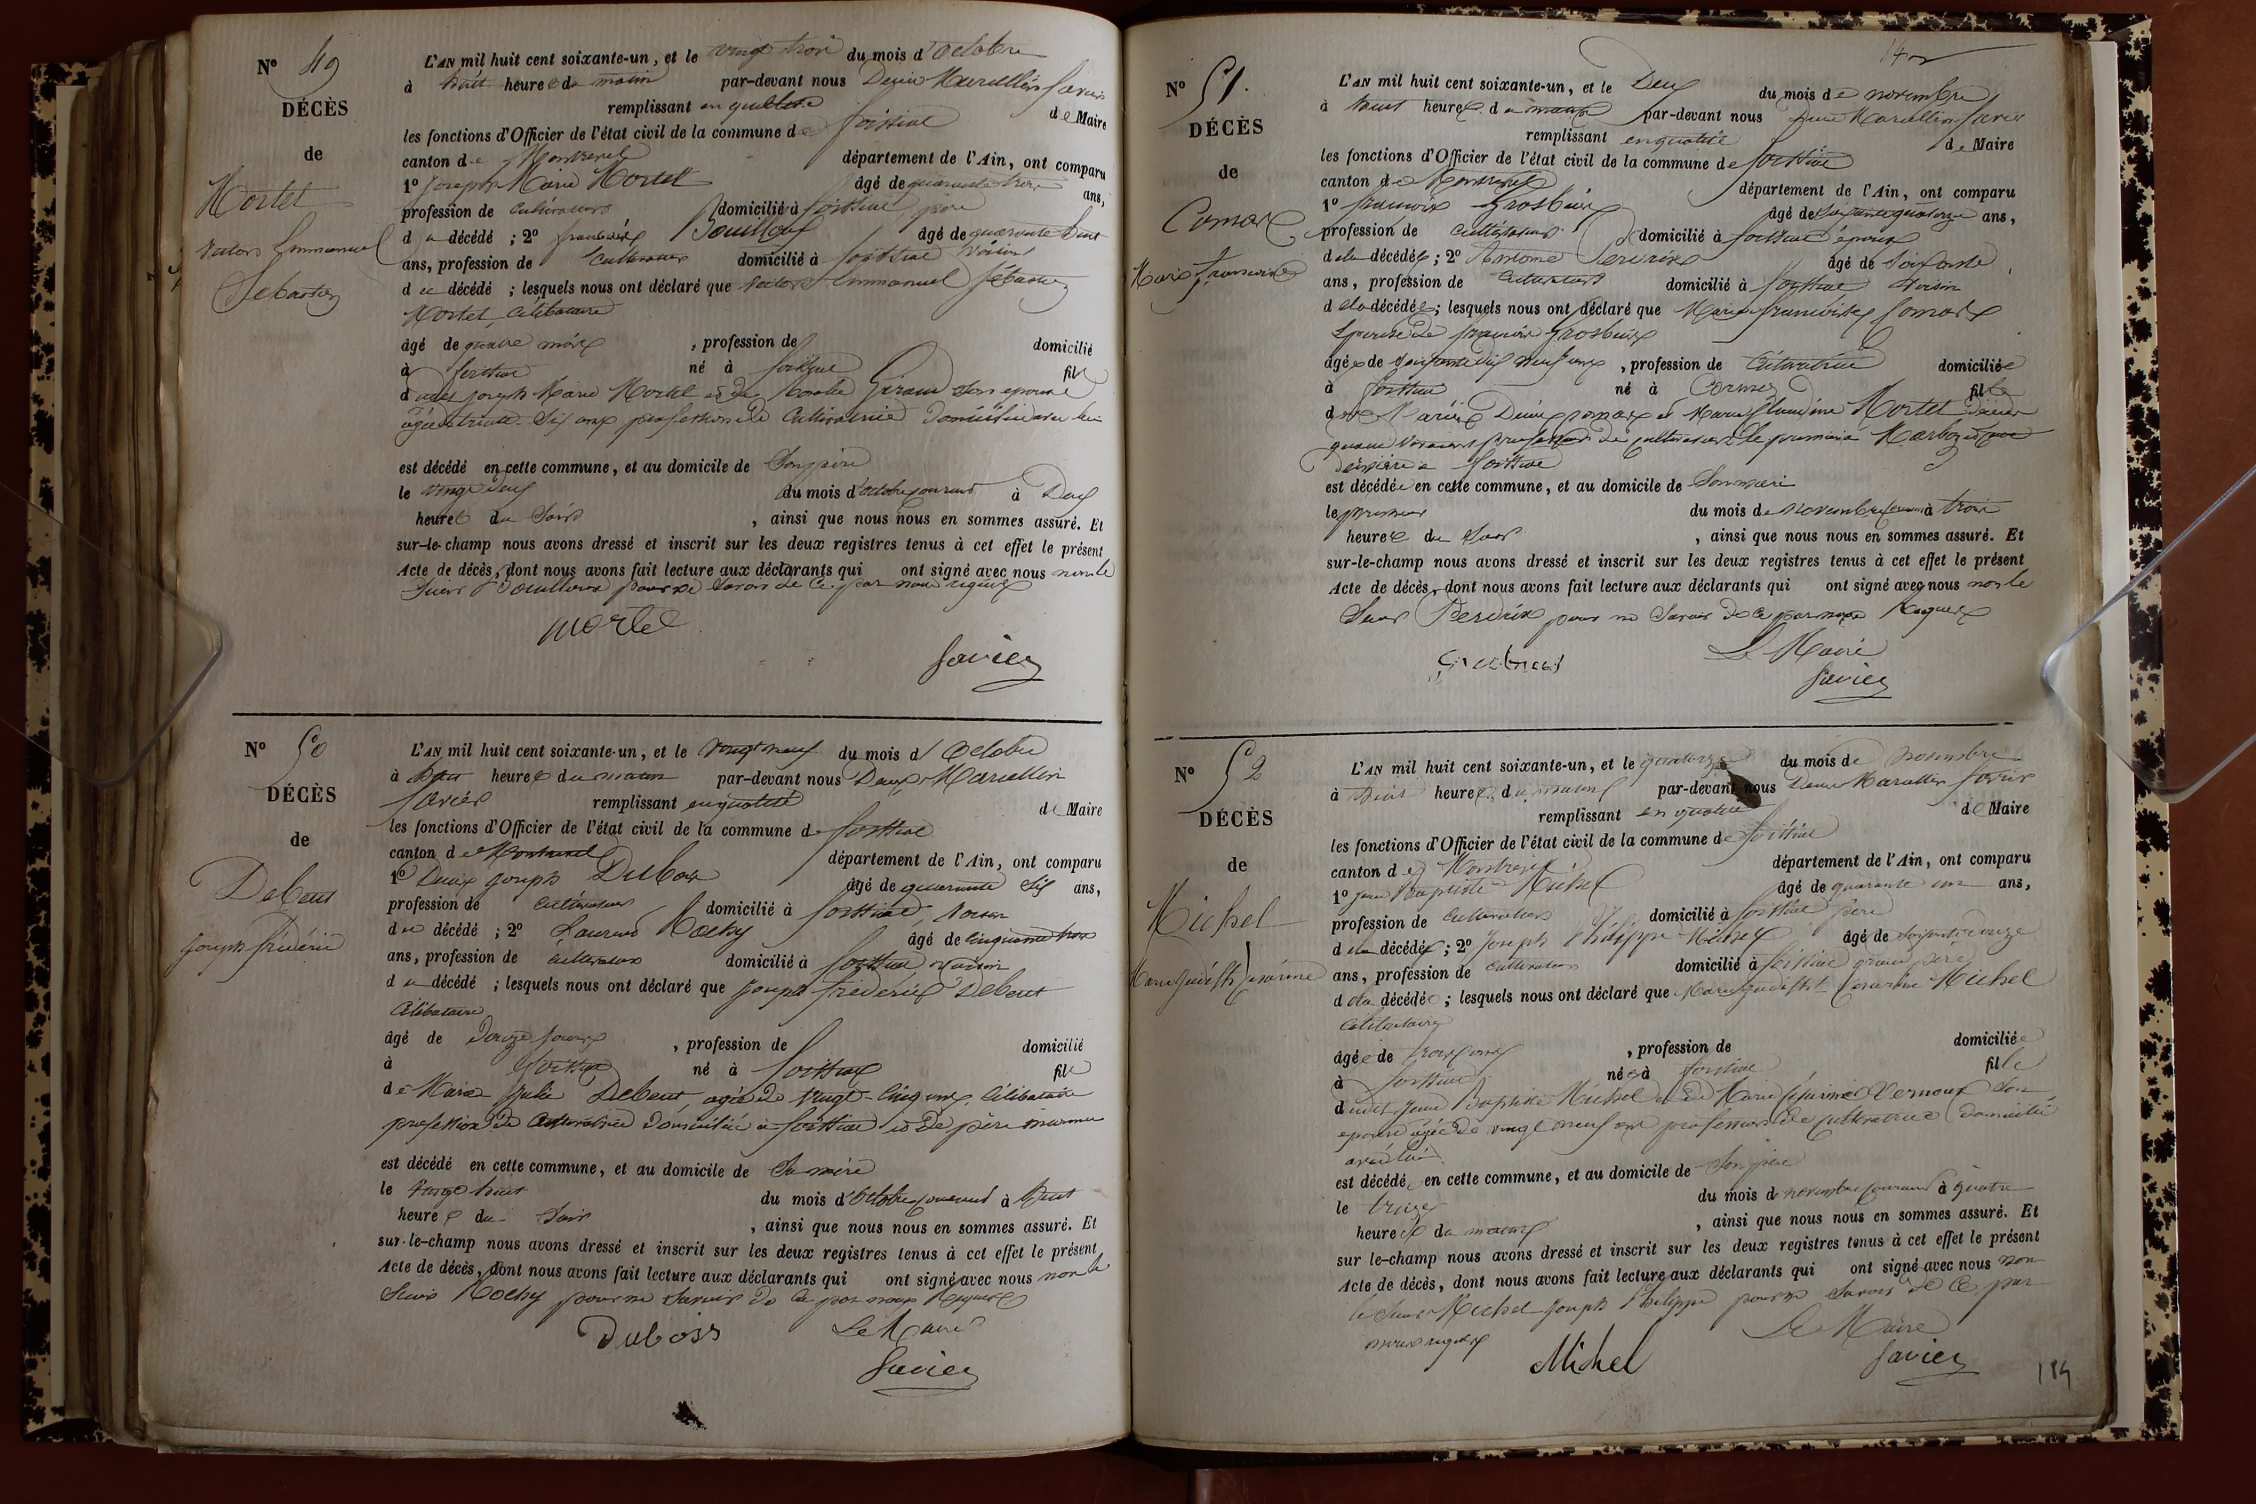 N° 49
DÉCÈS
de
Mortel
Victor Emmanuel
Sébastien
L'AN mil huit cent soixante-un, et le vingt trois du mois d'Octobre
à huit heures du matin par-devant nous Denis Marcellin Savier
remplissant en qualité de Maire
les fonctions d'Officier de l'état civil de la commune de foissiat
canton de Montrevel département de l'Ain, ont comparu
1° Joseph Marie Mortel âgé de quarante trois ans,
profession de cultivateur domicilié à foissiat père
du décédé ; 2° françois Bouilloux âgé de quarante huit
ans, profession de cultivateur domicilié à foissiat voisin
du décédé ; lesquels nous ont déclaré que Victor Emmanuel Sébastien
Mortel, célibataire
âgé de quatre mois , profession de domicilié
à foissiat né à foissiat fils
dudit joseph Marie Mortel et de Giraud son épouse
âgée de trente six ans profession de Cultivatrice domiciliée avec lui
est décédé en cette commune, et au domicile de Son père
le vingt deux du mois d'octobre courant à Deux
heures du Soir , ainsi que nous nous en sommes assuré. Et
sur-le-champ nous avons dressé et inscrit sur les deux registres tenus à cet effet le présent
Acte de décès, dont nous avons fait lecture aux déclarants qui ont signé avec nous non le
Sieur Bouilloux pour ne Savoir de ce par nous requis
Mortel
Savier
N° 50
DÉCÈS
de
Debeut
Joseph frédéric
L'AN mil huit cent soixante-un, et le vingt neuf du mois d'Octobre
à huit heures du matin par-devant nous Denis Marcellin
Savier remplissant en qualité de Maire
les fonctions d'Officier de l'état civil de la commune de foissiat
canton de Montrevel département de l'Ain, ont comparu
1° Denis joseph Dubois âgé de quarante six ans,
profession de cultivateur domicilié à foissiat, voisin
du décédé ; 2° Laurent Rochy âgé de cinquante trois
ans, profession de cultivateur domicilié à foissiat voisin
du décédé ; lesquels nous ont déclaré que joseph frédéric Debeut
Célibataire
âgé de Douze jours , profession de domicilié
à foissiat né à foissiat fils
de Marie Julie Debeut agée de vingt-cinq ans, célibataire
profession de Cultivatrice domiciliée à foissiat et de père inconnu
est décédé en cette commune, et au domicile de Sa mère
le vingt huit du mois d'Octobre courant à huit
heures du Soir , ainsi que nous nous en sommes assuré. Et
sur-le-champ nous avons dressé et inscrit sur les deux registres tenus à cet effet le présent
Acte de décès, dont nous avons fait lecture aux déclarants qui ont signé avec nous non le
Sieur Rochy pour ne Savoir de ce par nous Requis
Dubois Le Maire
Savier
N° 51.
DÉCÈS
de
Comas
Marie françoise
L'AN mil huit cent soixante-un, et le Deux du mois de novembre
à huit heures du matin par-devant nous Denis Marcellin Savier
remplissant en qualité de Maire
les fonctions d'Officier de l'état civil de la commune de foissiat
canton de Montrevel département de l'Ain, ont comparu
1° françois Grosbuis âgé de soixante quatorze ans,
profession de cultivateur domicilié à foissiat époux
de la décédée ; 2° Antoine Perdrix âgé de soixante
ans, profession de cultivateur domicilié à foissiat voisin
de la décédée ; lesquels nous ont déclaré que Marie françoise Comas
épouse de françois Grosbuis
âgée de soixante dix neuf ans , profession de Cultivatrice domiciliée
à foissiat née à Cormoz fille
Denis Comas et Marie Claudine Mortel
quand vivaient profession de cultivateurs le premier à Marboz et
dernière à foissiat
est décédée en cette commune, et au domicile de Son mari
le premier du mois de novembre courant à trois
heures du Soir , ainsi que nous nous en sommes assuré. Et
sur-le-champ nous avons dressé et inscrit sur les deux registres tenus à cet effet le présent
Acte de décès, dont nous avons fait lecture aux déclarants qui ont signé avec nous non le
Sieur Perdrix pour ne Savoir de ce par nous Requis
Le Maire
Savier
N° 52
DÉCÈS
de
Michel
L'AN mil huit cent soixante-un, et le quatorze du mois de novembre
à huit heures du matin par-devant nous Denis Marcellin Savier
remplissant en qualité de Maire
les fonctions d'Officier de l'état civil de la commune de foissiat
canton de Montrevel département de l'Ain, ont comparu
1° jean Baptiste Michel âgé de quarante un ans,
profession de cultivateur domicilié à foissiat père
de la décédée ; 2° Joseph Philippe Michel âgé de soixante douze
ans, profession de cultivateur domicilié à foissiat grand père
de la décédée ; lesquels nous ont déclaré que Marie Michel
célibataire
âgée de trois ans , profession de domiciliée
à foissiat née à foissiat fille
dudit jean Baptiste Michel et de Marie Vernoux son
épouse agée de vingt neuf ans profession de cultivatrice domiciliée
avec lui
est décédée en cette commune, et au domicile de Son père
le treize du mois de novembre courant à quatre
heures du matin , ainsi que nous nous en sommes assuré. Et
sur le-champ nous avons dressé et inscrit sur les deux registres tenus à cet effet le présent
Acte de décès, dont nous avons fait lecture aux déclarants qui ont signé avec nous non
le Sieur Michel joseph Philippe pour ne Savoir de ce par
nous requis
Le Maire
Michel Savier
184